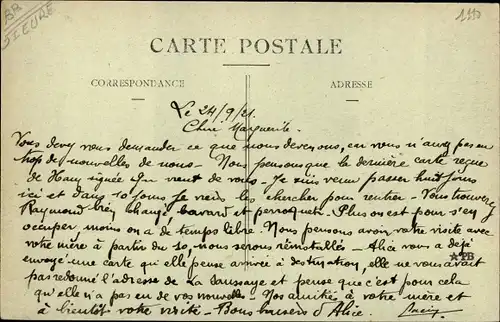 BR
SIEURE
1110
CARTE POSTALE
CORRESPONDANCE
ADRESSE
Le 24/9/21
Chère Marguerite.
Vous devez vous demander ce que nous devenons, car vous n'avez pas eu
trop de nouvelles de nous - Nous pensons que la dernière carte reçue
de Hauy signée vient de vous - Je suis venu passer huit jours
ici et dans 10 jours je viens les chercher pour rentrer - Vous trouverez
Raymond bien changé bavard et perroquet. Plus on est pour s'en
occuper moins on a de temps libre. Nous pensons avoir votre visite avec
votre mère à partir du 10, nous serons réinstallés - Alice vous a déjà
envoyé une carte qu'elle pense arrivée à destination, elle ne vous avait
pas redonné l'adresse de La Saussaye et pense que c'est pour cela
qu'elle n'a pas eu de vos nouvelles - Nos amitiés à votre mère et
à bientôt votre visite - Bons baisers d'Alice.
TB